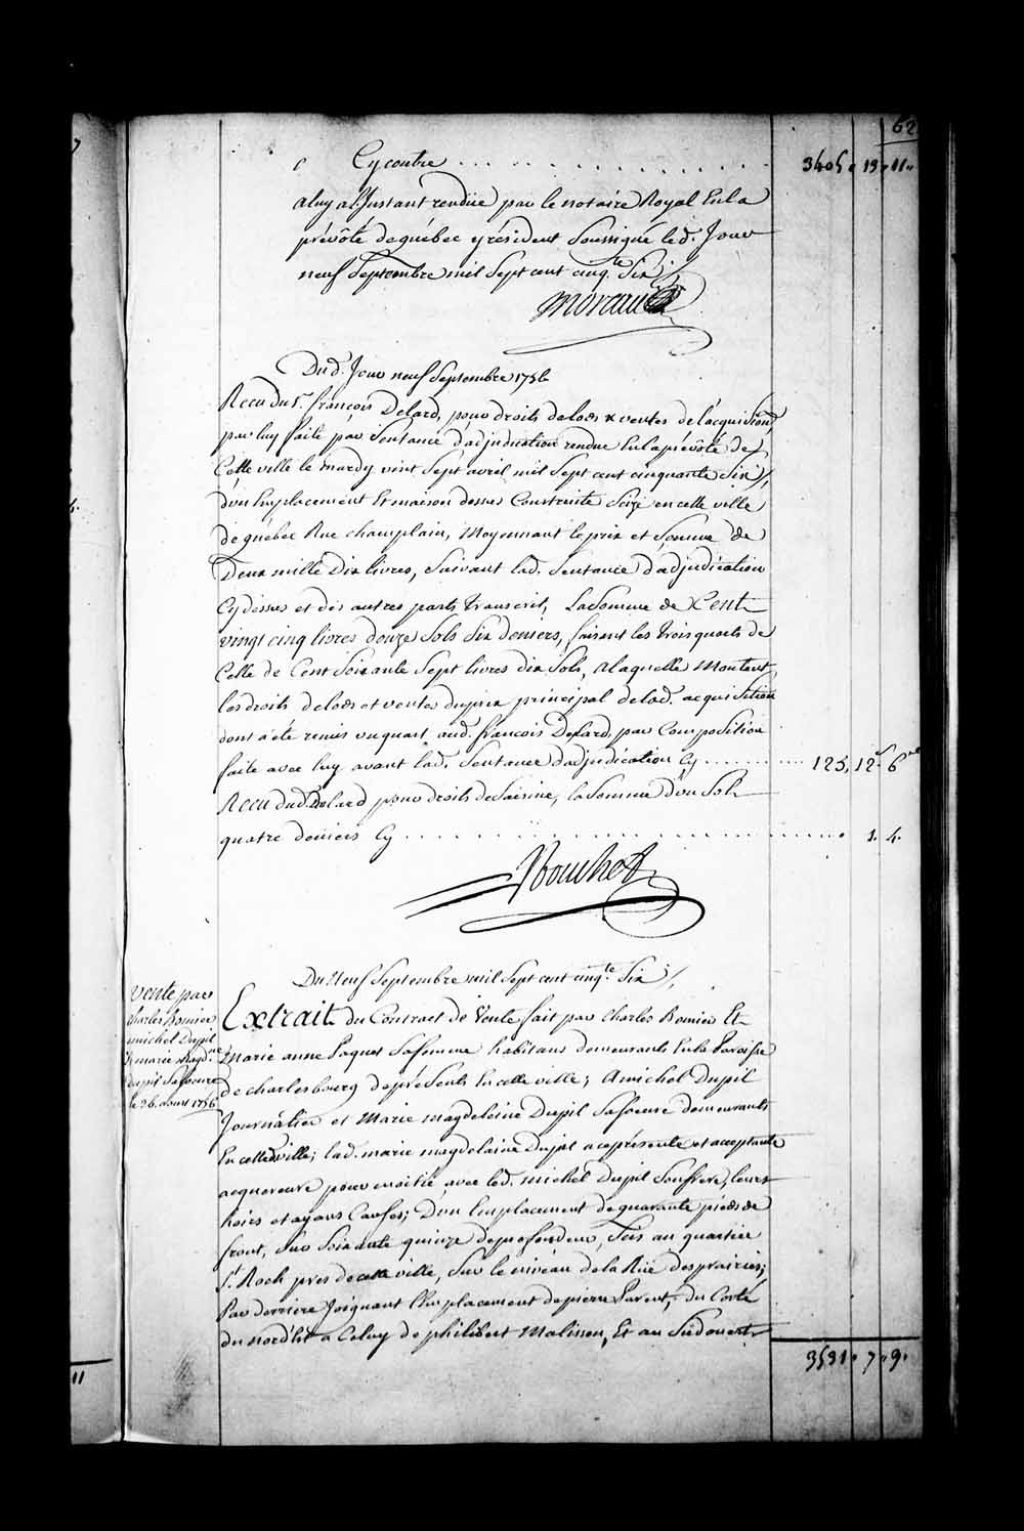 62
Cy contre . . . . . . . . . . . 3405. 13. 11.
a luy al'Instant rendüe par le notaire Royal En la
prévôté de québec y résident Soussigné led. Jour
neuf Septembre mil Sept cent cinq.te Six /.
Moreau
Dud. Jour neuf Septembre 1756
Receu du S.r françois Delard, pour droits de lods & ventes de l'acquisition
par luy faite par Sentence d'adjudication rendue En la prévôté de
Cette ville le mardy vint Sept avril mil Sept cent cinquante Six /,
d'un Emplacement Et maison dessus Construite Scize en cette ville
de québec Rue champlain, Moyennant le prix et Somme de
Deux mille Dix livres, Suivant lad. Sentence d'adjudication
Cy dessus et des autres parts transcrit, La Somme de Cent
vingt cinq livres douze Sols Six deniers, faisant les trois quarts de
Celle de Cent Soixante Sept livres dix Sols, a laquelle Montent
les droits de lods et ventes du prix principal de lad. acquisition
dont a été remis un quart aud. françois Delard, par Composition
faite avec luy avant lad. Sentence d'adjudication Cy . . . . . . . . . . 125. 12.s 6
Receu dud. Delard pour droits de Saisine, la Somme d'un Sol
quatre deniers Cy . . . . . . . . . . . . . . . . . . 1. 4.
Bouchet
Du Neuf Septembre mil Sept cent cinq.te Six /.
vente par
charles Romier
michel Dupil
& marie Magd.ne
dupil Sa Soeur
le 26. aoust 1756
Extrait du Contract de Vente fait par Charles Romier Et
Marie anne Paquet Sa femme habitans demeurants En la Paroisse
de charlesbourg de présents En cette ville; A michel Dupil
Journalier et Marie magdeleine Dupil Sa Soeur demeurants
En cette d. ville; lad. marie magdelaine Dupil a ce présente et acceptante
acquereure pour moitié avec led. michel Dupil Son frere, leurs
hoirs et ayans Causes; D'un Emplacement de quarante pieds de
front, Sur Soixante quinze de profondeur, Sis au quartier
S.t Roch pres de cette ville, Sur le niveau de la Rüe des prairies;
Par derriere Joignant l'Emplacement de pierre Parent, du Costé
du nord'Est a Celuy de philibert Malisson, Et au Sudouest
3531. 7. 9.
11